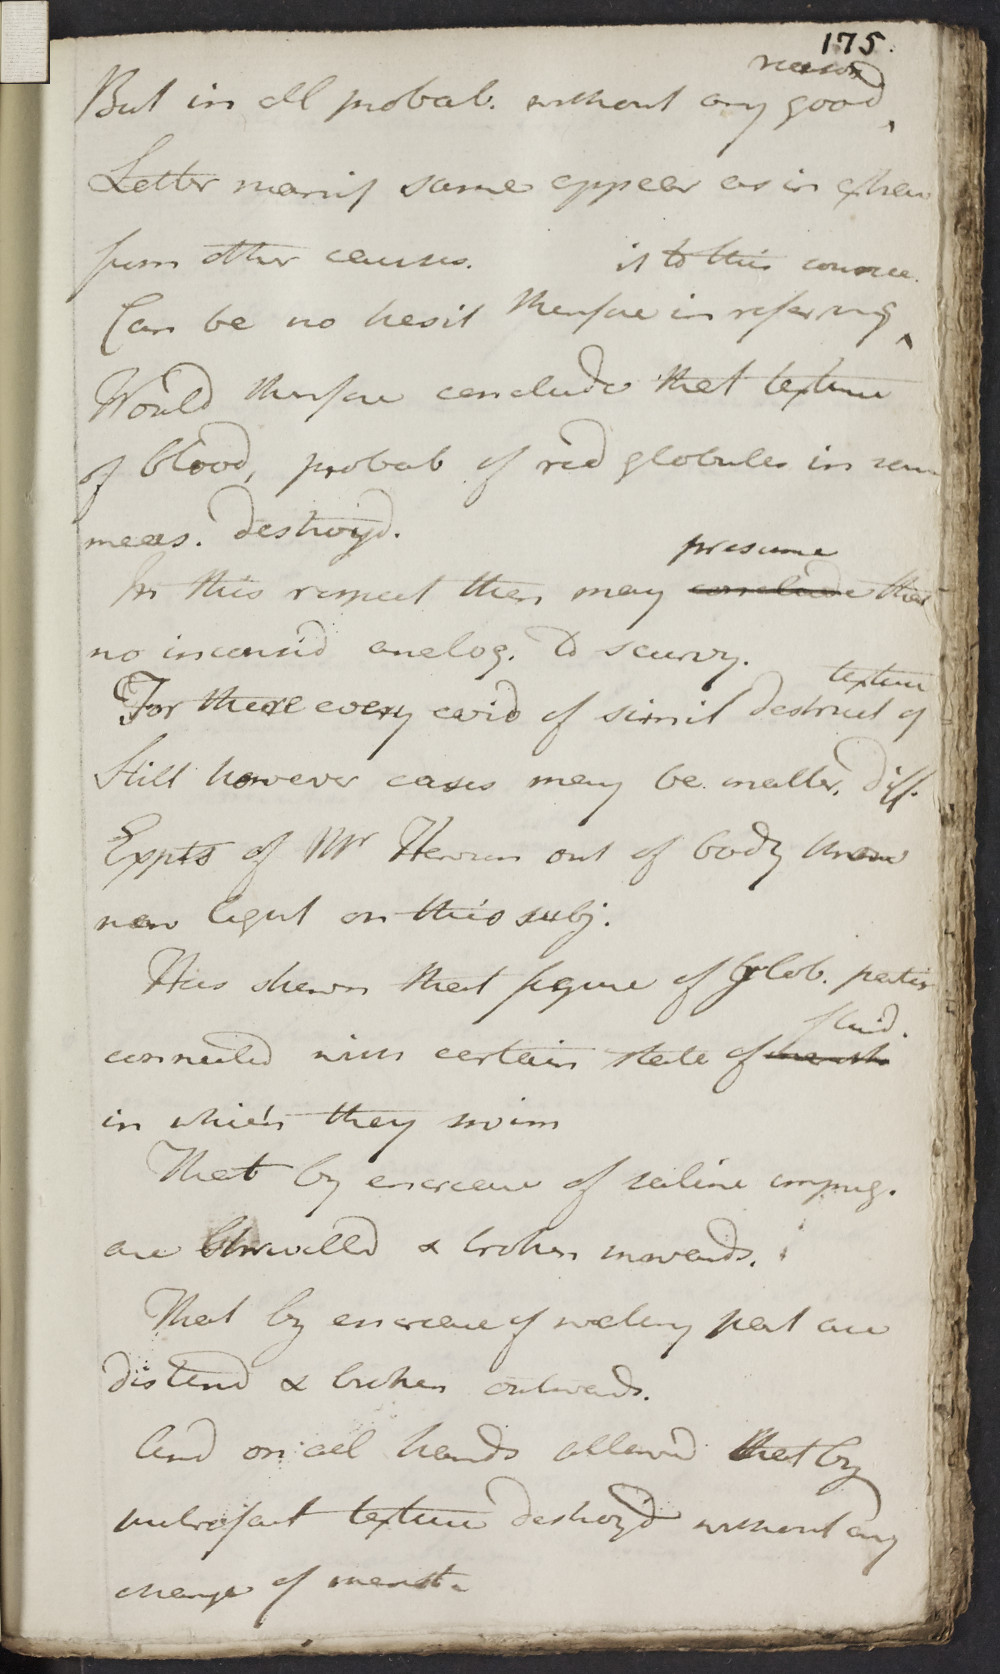 175.
reason
But in all probab. without any good ‸
Letter manif same appear as in
from other causes.
is to this source.
Can be no hesit therefore in referring ‸
Would therefore conclude that texture
of blood, probab of red globules in some
meas. destroy'd.
presume
In this respect then may conclude that
no inconsid analog. to scurvy.
texture
For there every evid of simil destruct of
Still however cases may be mater. diff.
Expts of Mr Hewson out of body throw
new light on this subj.
Has shewn that figure of Glob. partic
fluid.
connected with certain state of menstr
in which they swim
That by encrease of saline impreg.
are Shrivelld & broken inwards.
That by encrease of watery part are
distend & broken outwards.
And on all hands allowd that by
putrefact texture destroy'd without any
change of menst.